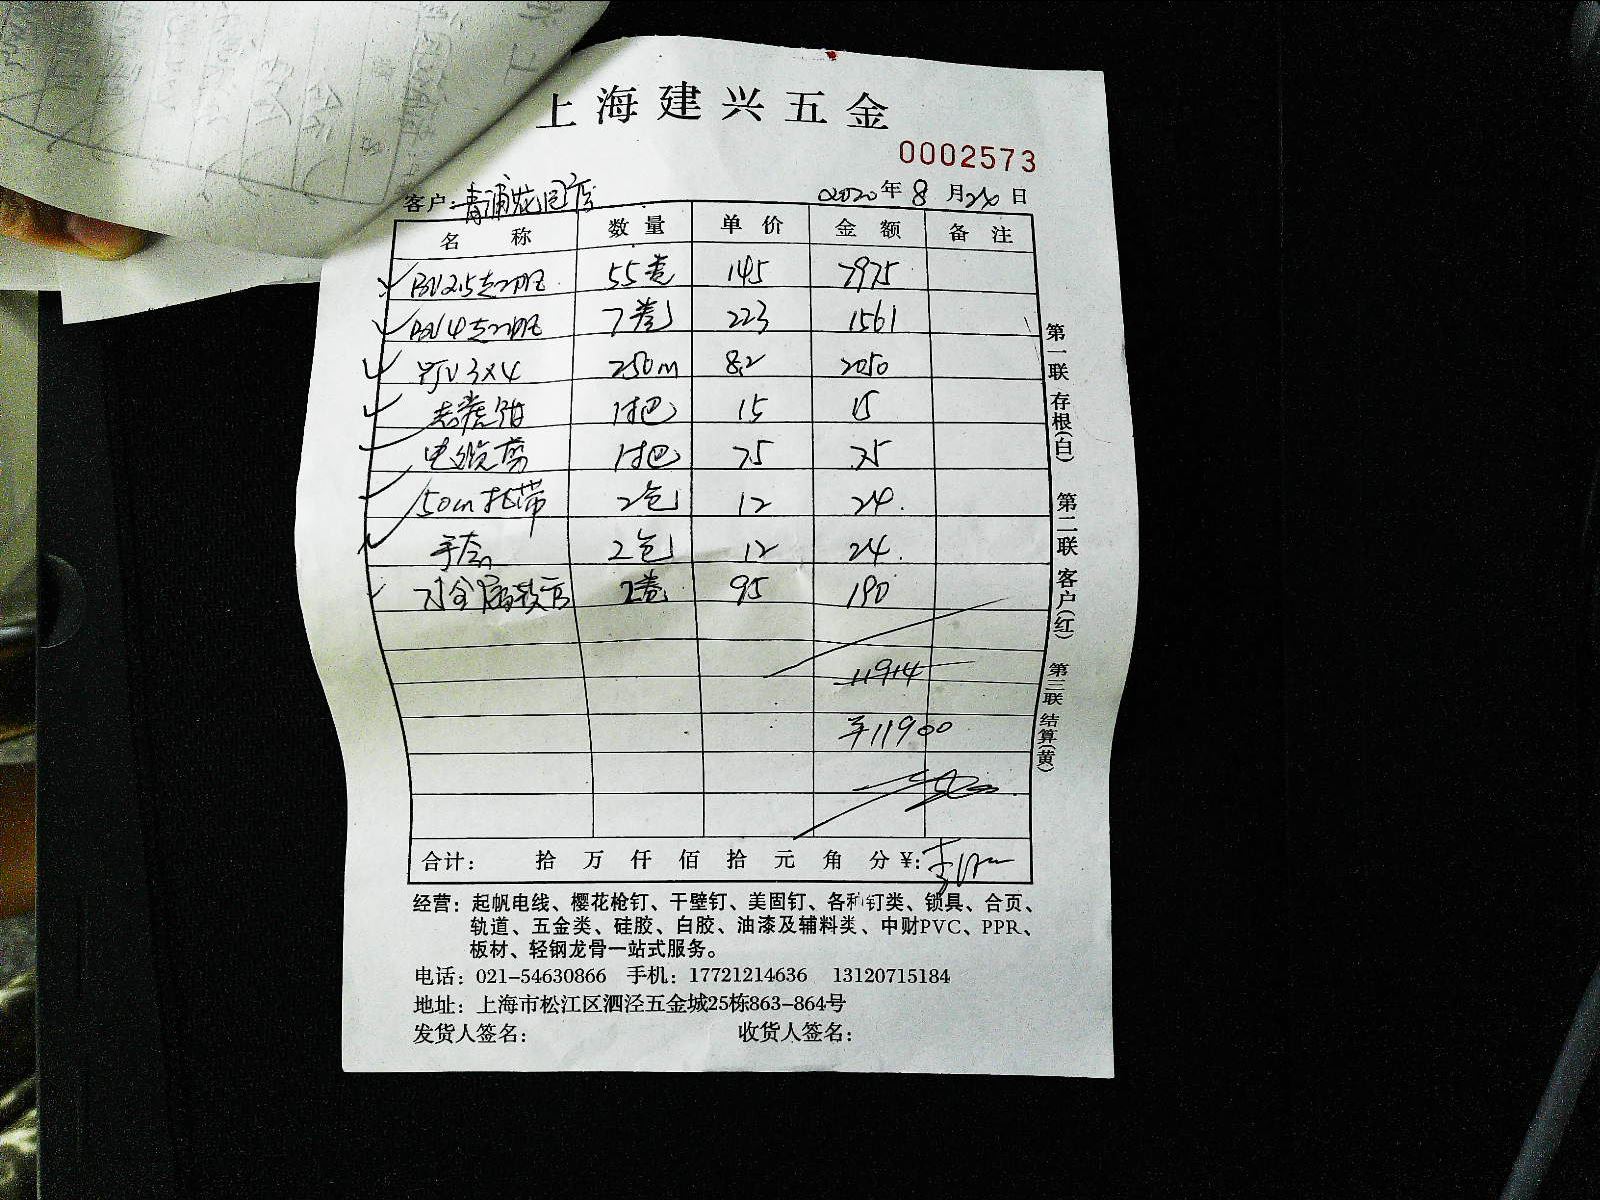 上海建兴五金
0002573
客户: 青浦花园店 2020年8月24日
名称 数量 单价 金额 备注
BV2.5起帆 55卷 145 7975
BV4起帆 7卷 223 1561
YJV 3×4 250m 8.2 2050
老虎钳 1把 15 15
电缆剪 1把 75 75
50cm扎带 2包 12 24.
手套 2包 12 24.
金属软管 2卷 95 190
11914
¥11900
合计: 拾 万 仟 佰 拾 元 角 分 ¥:
第一联 存根(白) 第二联 客户(红) 第三联 结算(黄)
经营: 起帆电线、樱花枪钉、干壁钉、美固钉、各种钉类、锁具、合页、
轨道、五金类、硅胶、白胶、油漆及辅料类、中财PVC、PPR、
板材、轻钢龙骨一站式服务。
电话: 021-54630866 手机: 17721214636 13120715184
地址: 上海市松江区泗泾五金城25栋863-864号
发货人签名: 收货人签名: